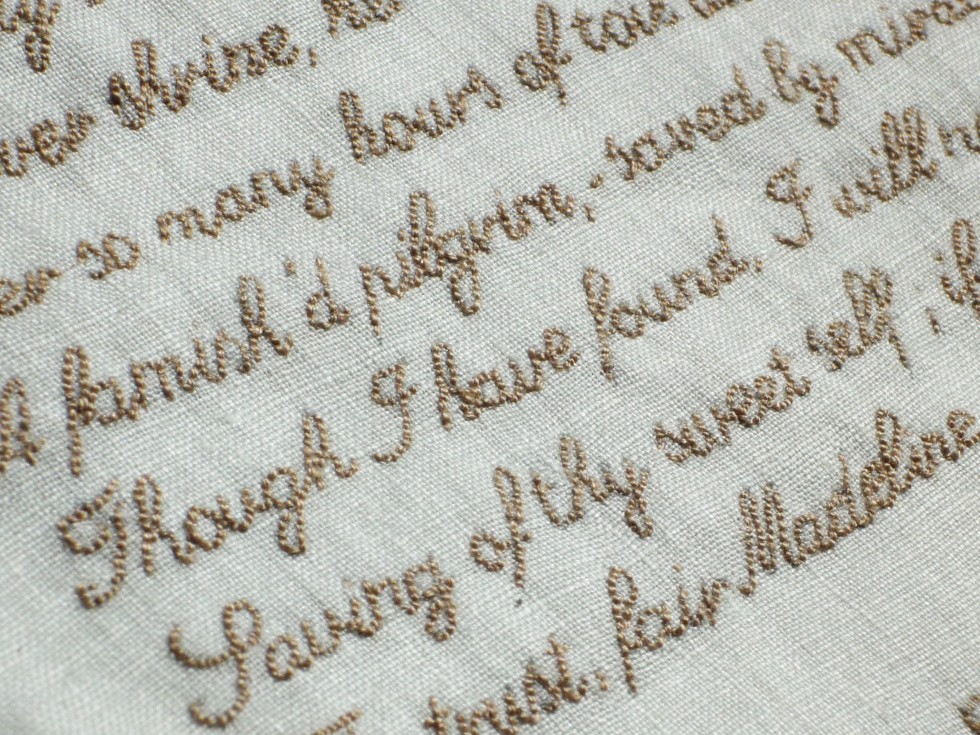 ver shrine, he
er so many hours of toil
A famish'd pilgrim,-saved by mira
Though I have found, I will n
Saving of thy sweet self; if
trust, fair Madeline